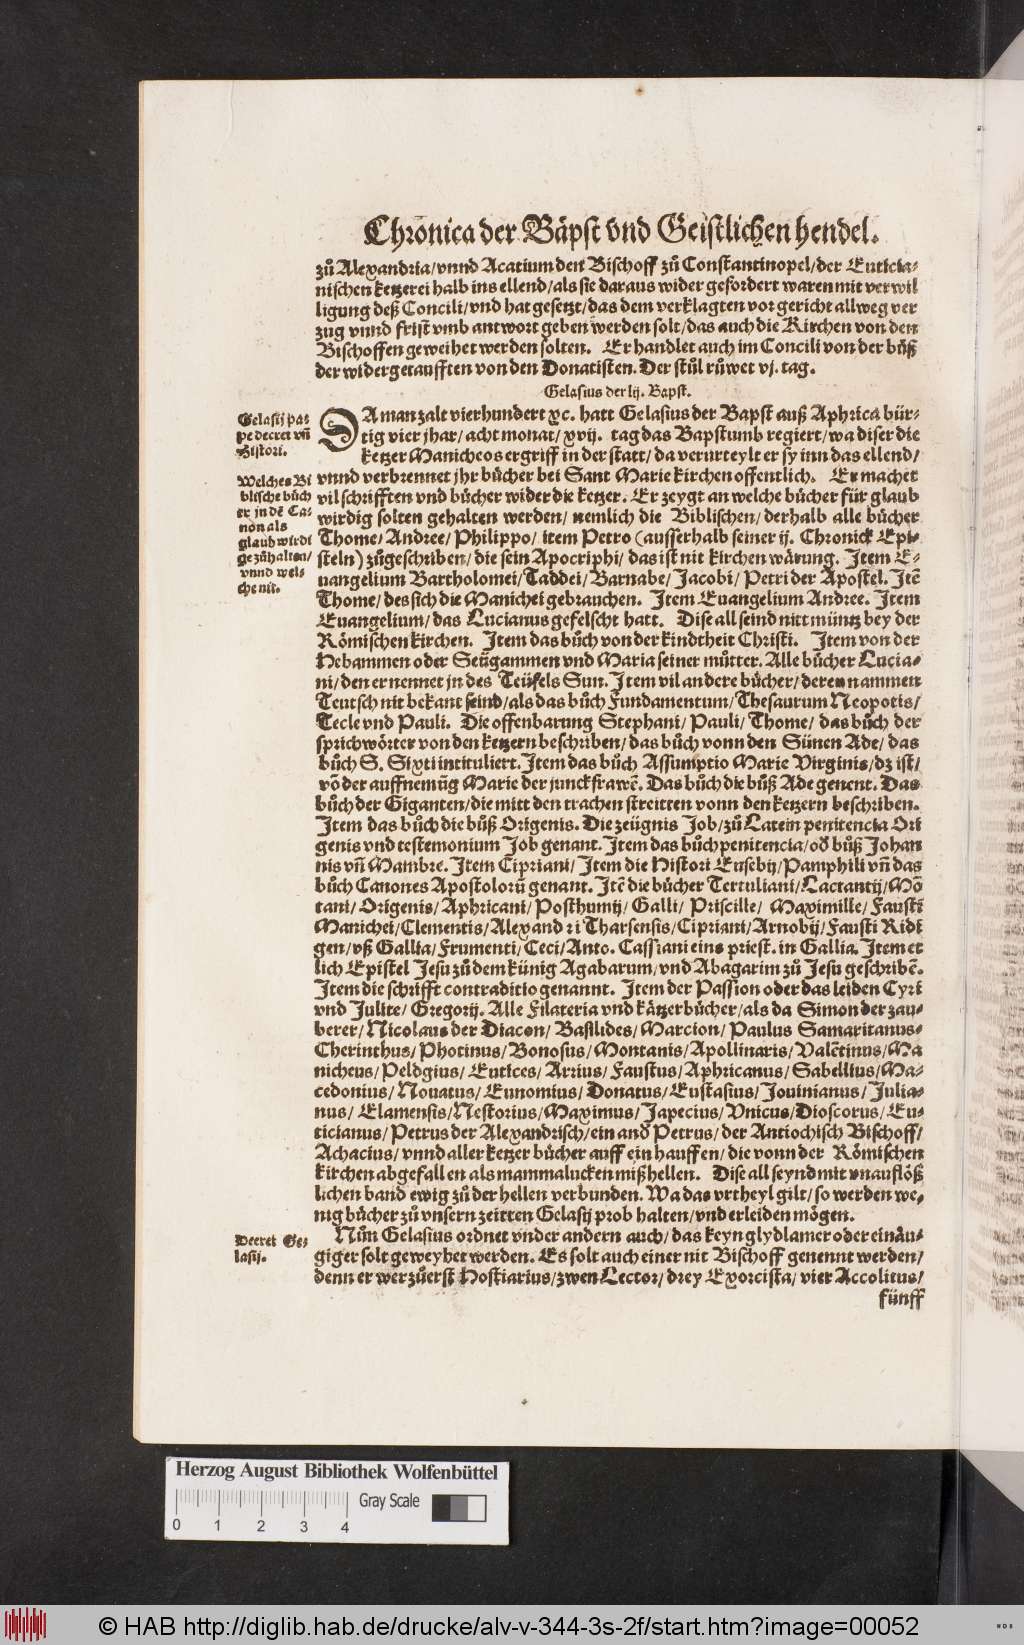 Chronica der Bäpst vnd Geistlichen hendel.
zů Alexandria/vnnd Acatium den Bischoff zů Constantinopel/der Euticia-
nischen ketzerei halb ins ellend/als sie daraus wider gefordert waren mit verwil
ligung deß Concili/vnd hat gesetzt/das dem verklagten vor gericht allweg ver
zug vnnd frist vmb antwort geben werden solt/das auch die Kirchen von den
Bischoffen geweihet werden solten. Er handlet auch im Concili von der bůß
der widergetaufften von den Donatisten. Der stůl růwet vj. tag.
Gelasius der lij. Bapst.
Gelasij pa-
pe decret vñ
Histori.
DA man zalt vierhundert xc. hatt Gelasius der Bapst auß Aphrica bür-
tig vier jhar/acht monat/xvij. tag das Bapstumb regiert/wa diser die
ketzer Manicheos ergriff in der statt/da verurteylt er sy inn das ellend/
Welches Bi
blische büch
er jn dē Ca-
non als
glaubwirdi
ge zůhalten/
vnnd wel-
che nit.
vnnd verbrennet jhr bůcher bei Sant Marie kirchen offentlich. Er machet
vil schrifften vnd bůcher wider die ketzer. Er zeygt an welche bůcher für glaub
wirdig solten gehalten werden/nemlich die Biblischen/derhalb alle bůcher
Thome/Andree/Philippo/item Petro (ausserhalb seiner ij. Chronick Epi-
steln) zůgeschriben/die sein Apocriphi/das ist nit kirchen wärung. Item E-
uangelium Bartholomei/Taddei/Barnabe/Jacobi/Petri der Apostel. Itē
Thome/des sich die Manichei gebrauchen. Item Euangelium Andree. Item
Euangelium/das Lucianus gefelscht hatt. Dise all seind nitt müntz bey der
Römischen kirchen. Item das bůch von der kindtheit Christi. Item von der
Hebammen oder Seügammen vnd Maria seiner můtter. Alle bůcher Lucia-
ni/den er nennet jn des Teüfels Sun. Item vil andere bůcher/deren nammen
Teutsch nit bekant seind/als das bůch Fundamentum/Thesaurum Neopotis/
Tecle vnd Pauli. Die offenbarung Stephani/Pauli/Thome/das bůch der
sprichwörter von den ketzern beschriben/das bůch vonn den Sünen Ade/das
bůch S. Sixti intituliert. Item das bůch Assumptio Marie Virginis/dz ist/
vō der auffnemūg Marie der junckfrawē. Das bůch die bůß Ade genent. Das
bůch der Giganten/die mitt den trachen streitten vonn den ketzern beschriben.
Item das bůch die bůß Origenis. Die zeügnis Job/zů Latein penitencia Ori
genis vnd testemonium Job genant. Item das bůch penitencia/oð bůß Johan
nis vñ Mambre. Item Cipriani/Item die Histori Eusebij/Pamphili vñ das
bůch Canones Apostolorū genant. Itē die bůcher Tertuliani/Lactantij/Mō
tani/Origenis/Aphricani/Posthumij/Galli/Priscille/Maximille/Fausti
Manichei/Clementis/Alexandri Tharsensis/Cipriani/Arnobij/Fausti Ridi
gen/vß Gallia/Frumenti/Ceci/Anto. Cassiani eins priest. in Gallia. Item et
lich Epistel Jesu zů dem künig Agabarum/vnd Abagarim zů Jesu geschribē.
Item die schrifft contraditio genannt. Item der Passion oder das leiden Cyri
vnd Julite/Gregorij. Alle Filateria vnd kätzerbůcher/als da Simon der zau-
berer/Nicolaus der Diacon/Basilides/Marcion/Paulus Samaritanus-
Cherinthus/Photinus/Bonosus/Montanis/Apollinaris/Valētinus/Ma
nicheus/Peldgius/Eutices/Arrius/Faustus/Aphricanus/Sabellius/Ma-
cedonius/Nouatus/Eunomius/Donatus/Eustasius/Jouinianus/Julia-
nus/Elamensis/Nestorius/Maximus/Japecius/Vnicus/Dioscorus/Eu-
ticianus/Petrus der Alexandrisch/ein and Petrus/der Antiochisch Bischoff/
Achacius/vnnd aller ketzer bůcher auff ein hauffen/die von der Römischen
kirchen abgefallen als mammalucken mißhellen. Dise all seynd mit vnauflöß
lichen band ewig zů der hellen verbunden. Wa das vrtheyl gilt/so werden we-
nig bůcher zů vnsern zeitten Gelasij prob halten/vnd erleiden mögen.
Decret Ge-
lasij.
Nůn Gelasius ordnet vnder andern auch/das keyn glydlamer oder einäu-
giger solt geweyhet werden. Es solt auch einer nit Bischoff genennt werden/
denn er wer zůerst Hostiarius/zwen Lector/drey Exorcista/vier Accolitus/
fünff
Herzog August Bibliothek Wolfenbüttel
Gray Scale
0 1 2 3 4
© HAB http://diglib.hab.de/drucke/alv-v-344-3s-2f/start.htm?image=00052